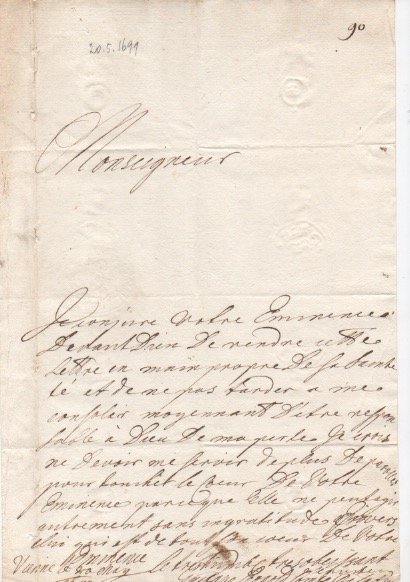 20.5.1699
90
Monseigneur
Je conjure Votre Eminence
Devant Dieu De rendre cette
Lettre en main propre De Sa Sainte
té et de ne pas tarder a me
consoler moyennant D'être respon
sable à Dieu de ma perte Je crois
ne Devoir me servir de plus De paroles
pour toucher le cœur De Votre
Eminence parce que Elle ne peut agir
autrement sans ingratitude Envers
celui qui est de tout son coeur De Votre
Eminence
Vienne le 20 May Le tres humble tres obeissant